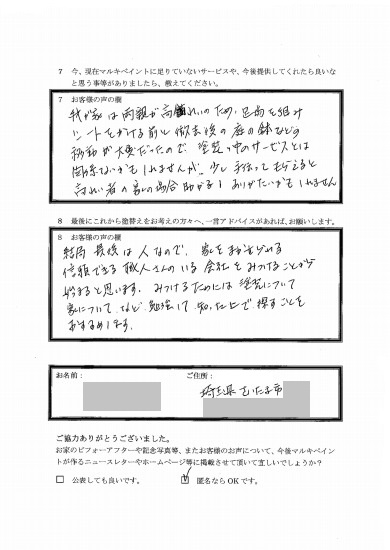 7 今、現在マルキペイントに足りていないサービスや、今後提供してくれたら良いな
と思う事等がありましたら、教えてください。
7 お客様の声の欄
我が家は両親が高齢のため、足場を組み
シートをかける前と撤去後の庭の鉢などの
移動が大変だったので、塗装中のサービスとは
関係ないかもしれませんが、少し手伝ってもらえると
高れい者の家の場合助かるし ありがたいかもしれません
8 最後にこれから塗替えをお考えの方々へ、一言アドバイスがあれば、お願いします。
8 お客様の声の欄
結局 最後は人なので、家をまかせられる
信頼できる職人さんのいる会社をみつけることから
始まると思います。みつけるためには塗装について
家について、など 勉強して 知った上で探すことを
おすすめします。
お名前：
ご住所：
埼玉県さいたま市
ご協力ありがとうございました。
お家のビフォーアフターや記念写真等、またお客様のお声について、今後マルキペイン
トが作るニュースレターやホームページ等に掲載させて頂いて宜しいでしょうか？
□ 公表しても良いです。 ☑ 匿名ならOKです。